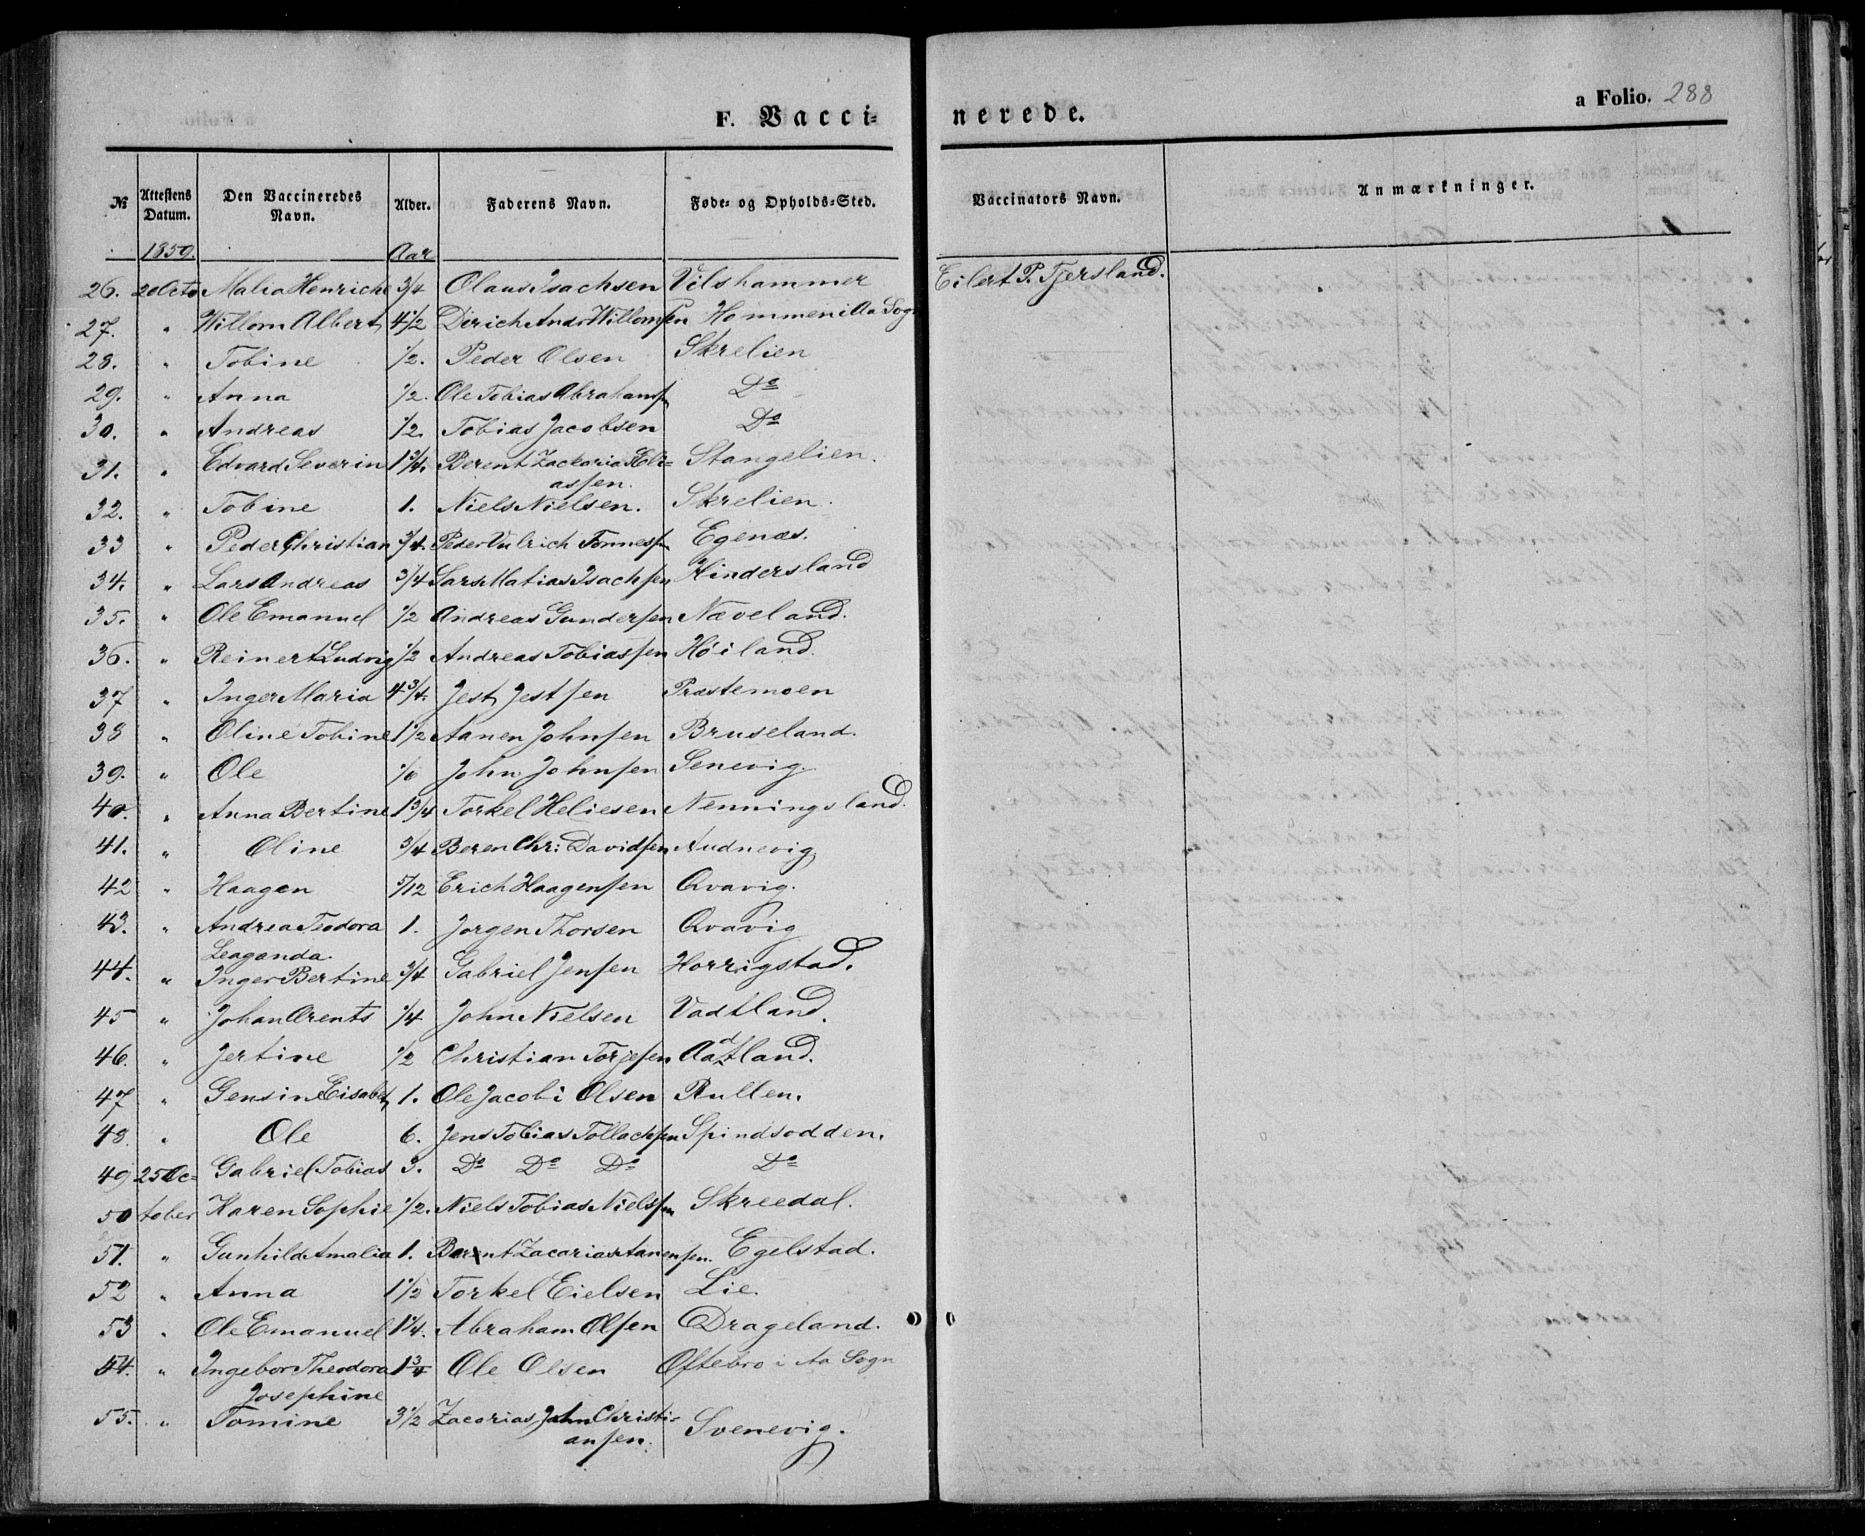 F. Vacci-
nerede.
a Folio. 288
№ Attestens Datum. Den Vaccineredes Navn. Alder. Faderens Navn. Føde- og Opholds-Sted. Vaccinators Navn. Anmærkninger.
1859. Aar
26. 20 Octo Malia Henriche 3/4 Olaus Isachsen Vilshammer Eilert P. Tjersland.
27. " Willom Albert 4 1/2 Dirich Andr Willomsen Hommen i Aa Sogn
28. " Tobine 1/2. Peder Olsen Skrelien
29. " Anna 1/2. Ole Tobias Abrahams Do
30. " Andreas 1/2. Tobias Jacobsen Do
31. " Edvard Severin 1 3/4. Berent Zackarias Eli- Stangelien.
assen.
32. " Tobine 1. Niels Nielsen. Skrelien.
33 " Peder Christian 3/4. Peder Vulrich Tønnes Egenæs.
34. " Lars Andreas 3/4 Lars Matias Isachsen Hindersland
35. " Ole Emanuel 1/2 Andreas Gundersen Næveland.
36. " Reinert Ludvig 1/2 Andreas Tobiassen Høiland.
37 " Inger Maria 4 3/4. Jest Jestsen Præstemoen
38 " Oline Tobine 1 1/2 Aanen Johnsen Bruseland.
39. " Ole John Johnsen Senevig
40. " Anna Bertine 1 3/4 Torkel Heliesen Nenningsland.
41. " Oline 3/4 Beren Chr: Davidsen Audnevig
42 " Haagen 5/12 Erich Haagensen Qvavig.
43. " Andrea Teodora 1. Jørgen Thorsen Qvavig
Leaganda.
44. " Inger Bertine 3/4 Gabriel Jensen Horrigstad.
45 " Johan Arents 1/4 John Nielsen Vadtland.
46. " Jertine 1/2 Christian Torjesen Aadtland.
47 " Gensine Eisabet 1. Ole Jacobi Olsen Rullen.
48. " Ole 6. Jens Tobias Tollachsen Spindsodden.
49 25 Oc- Gabriel Tobias 3. Do Do Do Do
50 tober Karen Sophie 1/2. Niels Tobias Nielssen Skreedal.
51. " Gunhild Amalia 1. Barent Zacarias Aanensen. Egelstad.
52 " Anna 1 1/2 Torkel Eielsen Lie.
53 " Ole Emanuel 1 1/4. Abraham Olsen Drageland.
54. " Ingebor Theodora 1 3/4 Ole Olsen Øftebro i Aa Sogn
Josephine
55. " Tomine 3 1/2 Zacarias John Christi- Svenevig.
ansen.